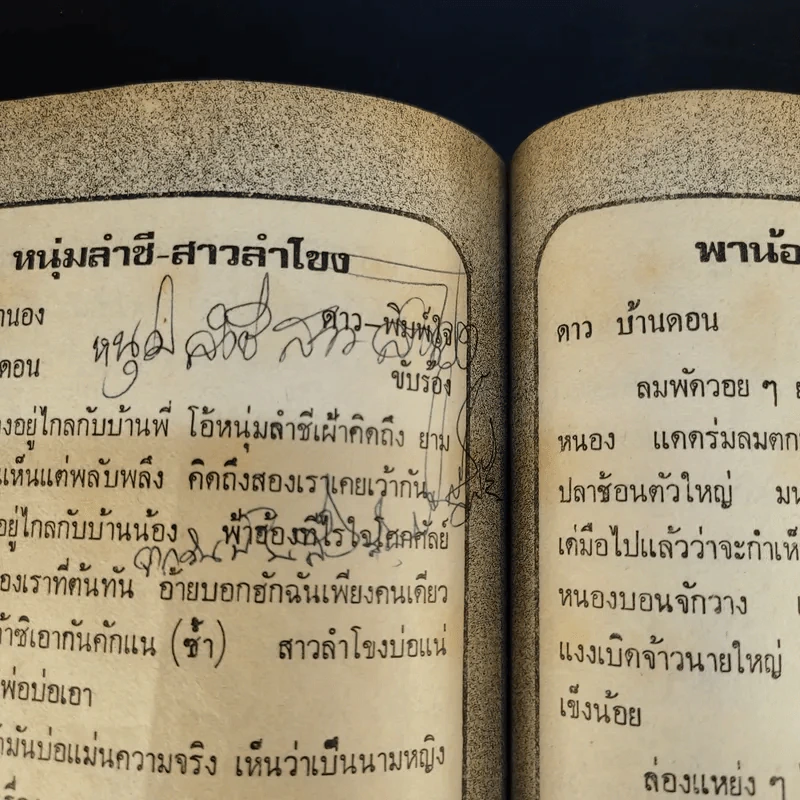 หนุ่มลำชี-สาวลำโขง
ดาว-พิมพ์ใจ
ดอน
ขับร้อง
หนุ่ม ลำชี สาว
อยู่ไกลกับบ้านพี่ โอ้หนุ่มลำชีเฝ้าคิดถึง ยาม
เห็นแต่พลับพลึง คิดถึงสองเราเคยเว้ากัน
อยู่ไกลกับบ้านน้อง พ้าฮ้องทีไร
องเราที่ต้นทัน อ้ายบอกฮักฉันเพียงคนเดียว
ซิเอากันคักแน (ซ้ำ) สาวลำโขงบ่อแน่
พ่อบ่อเอา
มันบ่อแม่นความจริง เห็นว่าเป็นนามหญิง
พาน้อ
ดาว บ้านดอน
ลมพัดวอย ๆ
หนอง แดดร่มลมตก
ปลาช้อนตัวใหญ่
เด่มือไปแล้วว่าจะกำเห็
หนองบอนจักวาง
แงงเบิดจ้าวนายใหญ่
เข็งน้อย
ล่องแหย่ง ๆ